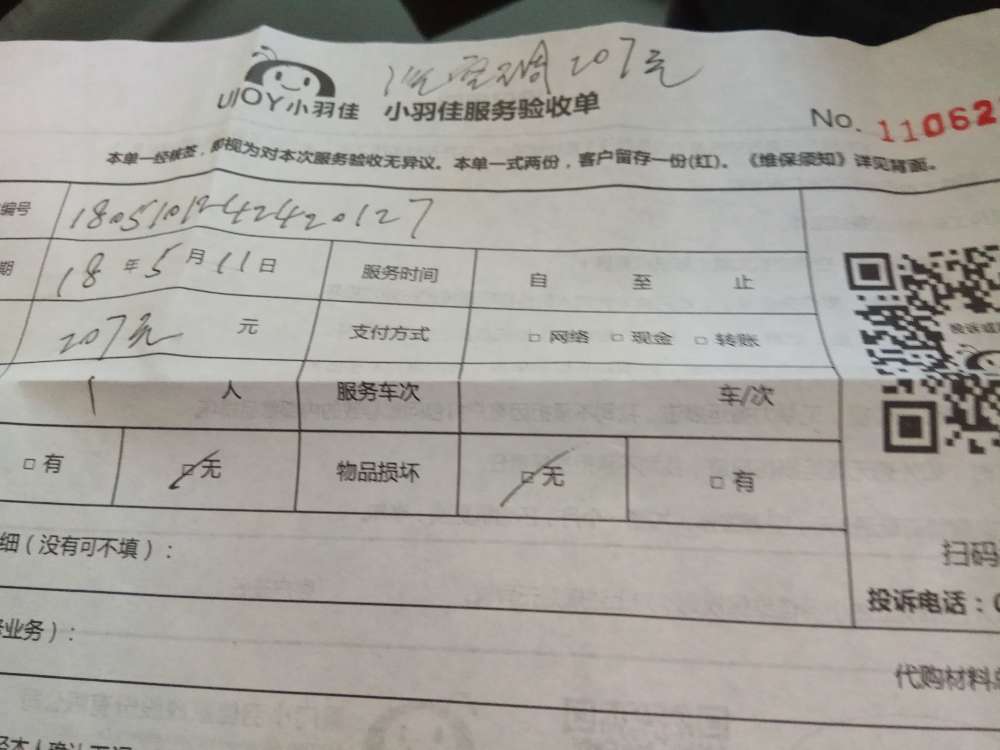 洗空调 207元
UJOY小羽佳 小羽佳服务验收单
No. 11062
本单一经核签，即视为对本次服务验收无异议。本单一式两份，客户留存一份(红)。《维保须知》详见背面。
编号 18051012424420127
期 18年5月11日 服务时间 自 至 止
207元 元 支付方式 □ 网络 □ 现金 □ 转账
1 人 服务车次 车/次
□ 有 □ 无 物品损坏 □ 无 □ 有
细（没有可不填）：
扫码
投诉电话：(
业务）：
代购材料